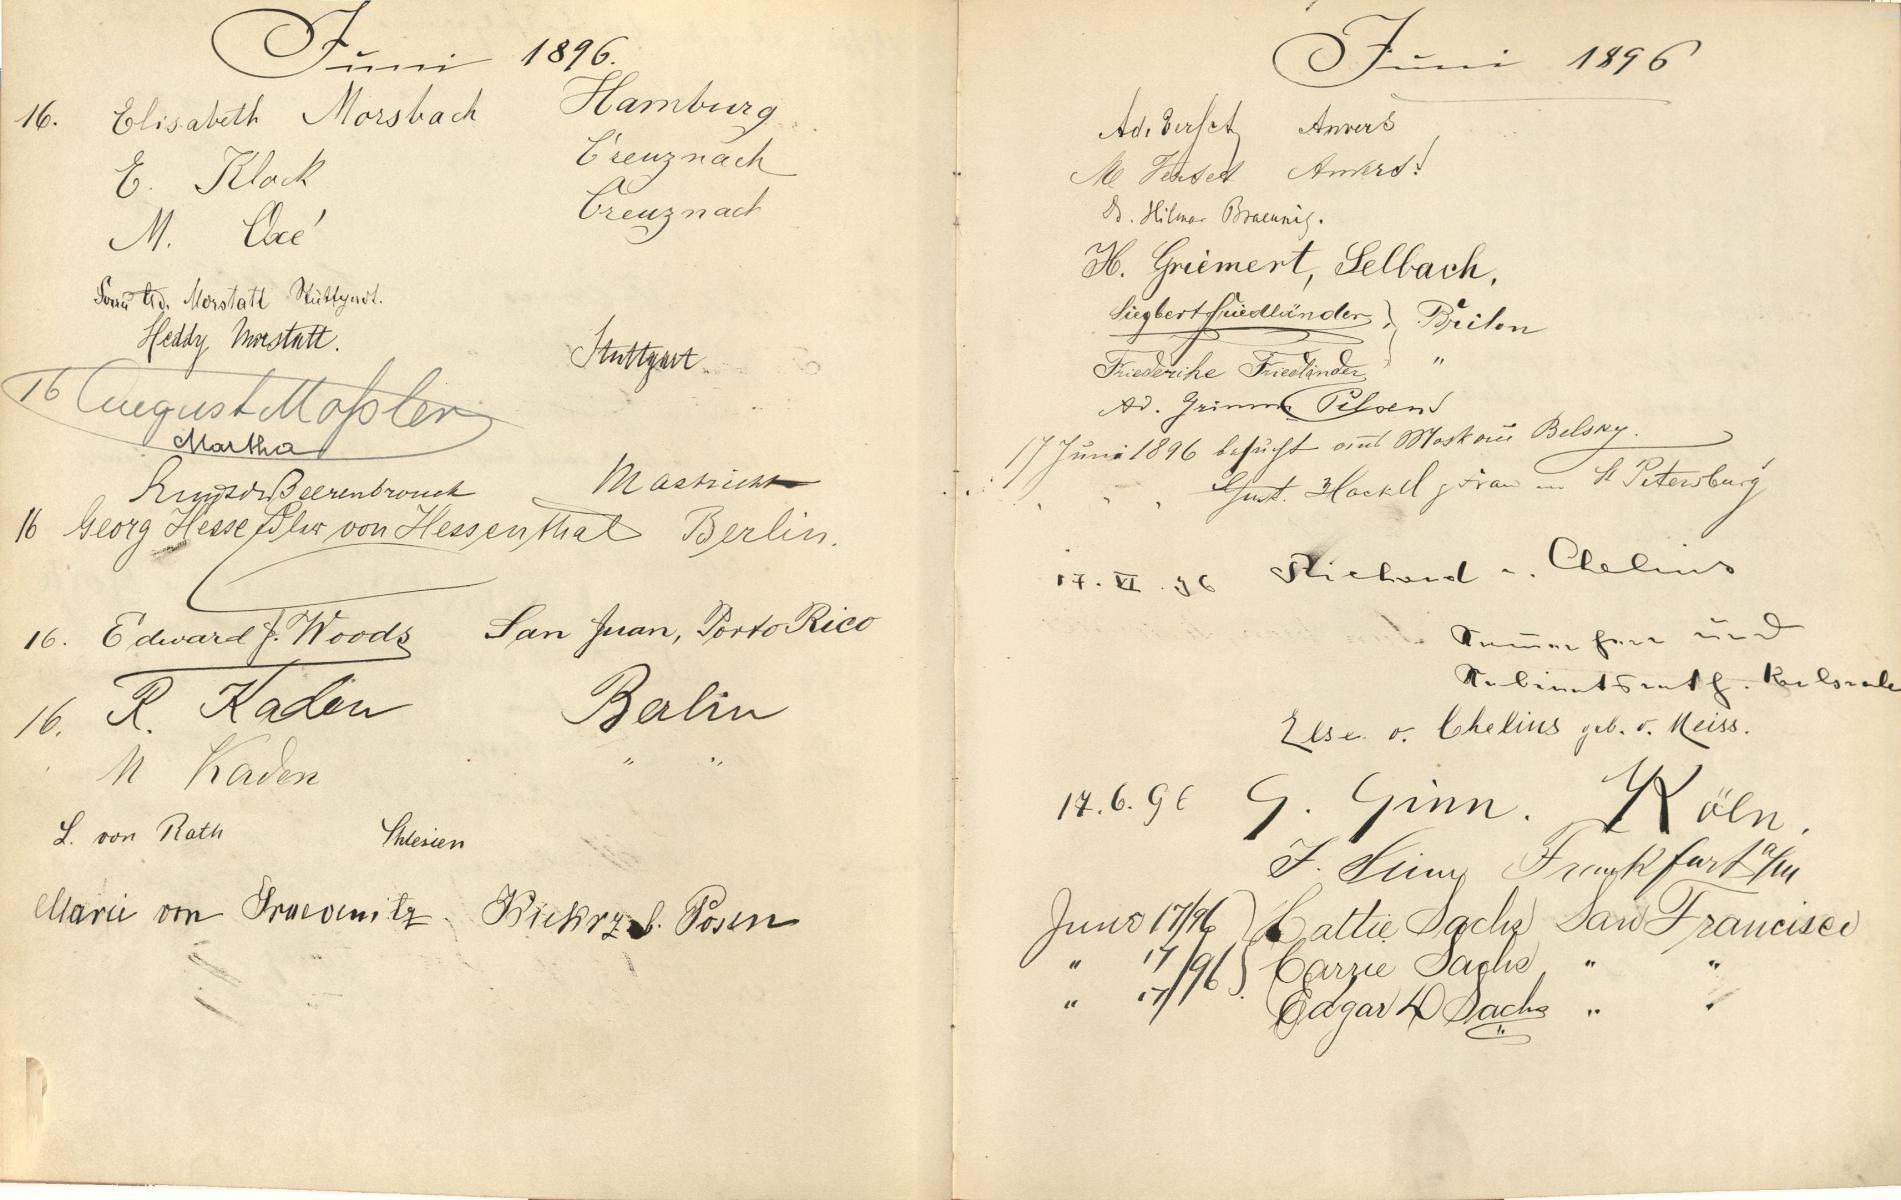 Juni 1896.
16. Elisabeth Morsbach Hamburg
E. Klock Creuznach
M. Oxé Creuznach
Morstatt Stuttgart.
Heddy Morstatt. Stuttgart
16 August Moßler
Martha
Beerenbrouck Mastricht
16 Georg Hesse von Hessenthal Berlin.
16. Edward J. Woods San Juan, Porto Rico
16. R. Kaden Berlin
M Kaden " "
L. von Rath Schlesien
Marie von Kiekrz b. Posen
Juni 1896
Anvers
M
Dr. Hilmar Braeunig.
H. Griemert, Selbach,
Siegbert Friedländer } Brilon
Friederike Friedländer "
Ad. Grimm
17 Juni 1896 besucht aus Moskau Belsky.
" " " Gust. Hackel & Frau St Petersburg
17. VI. 96 Richard v. Chelius
Kammerherr und
Kabinetsrath. Karlsruhe
Else v. Chelius geb. v. Meiss.
17. 6. 96 G. Ginn. Köln.
F. Frankfurt a/M
June 17/96 } Cattie Sachs San Francisco
" 17/96 } Carrie Sachs " "
" 17/96 Edgar D Sachs " "